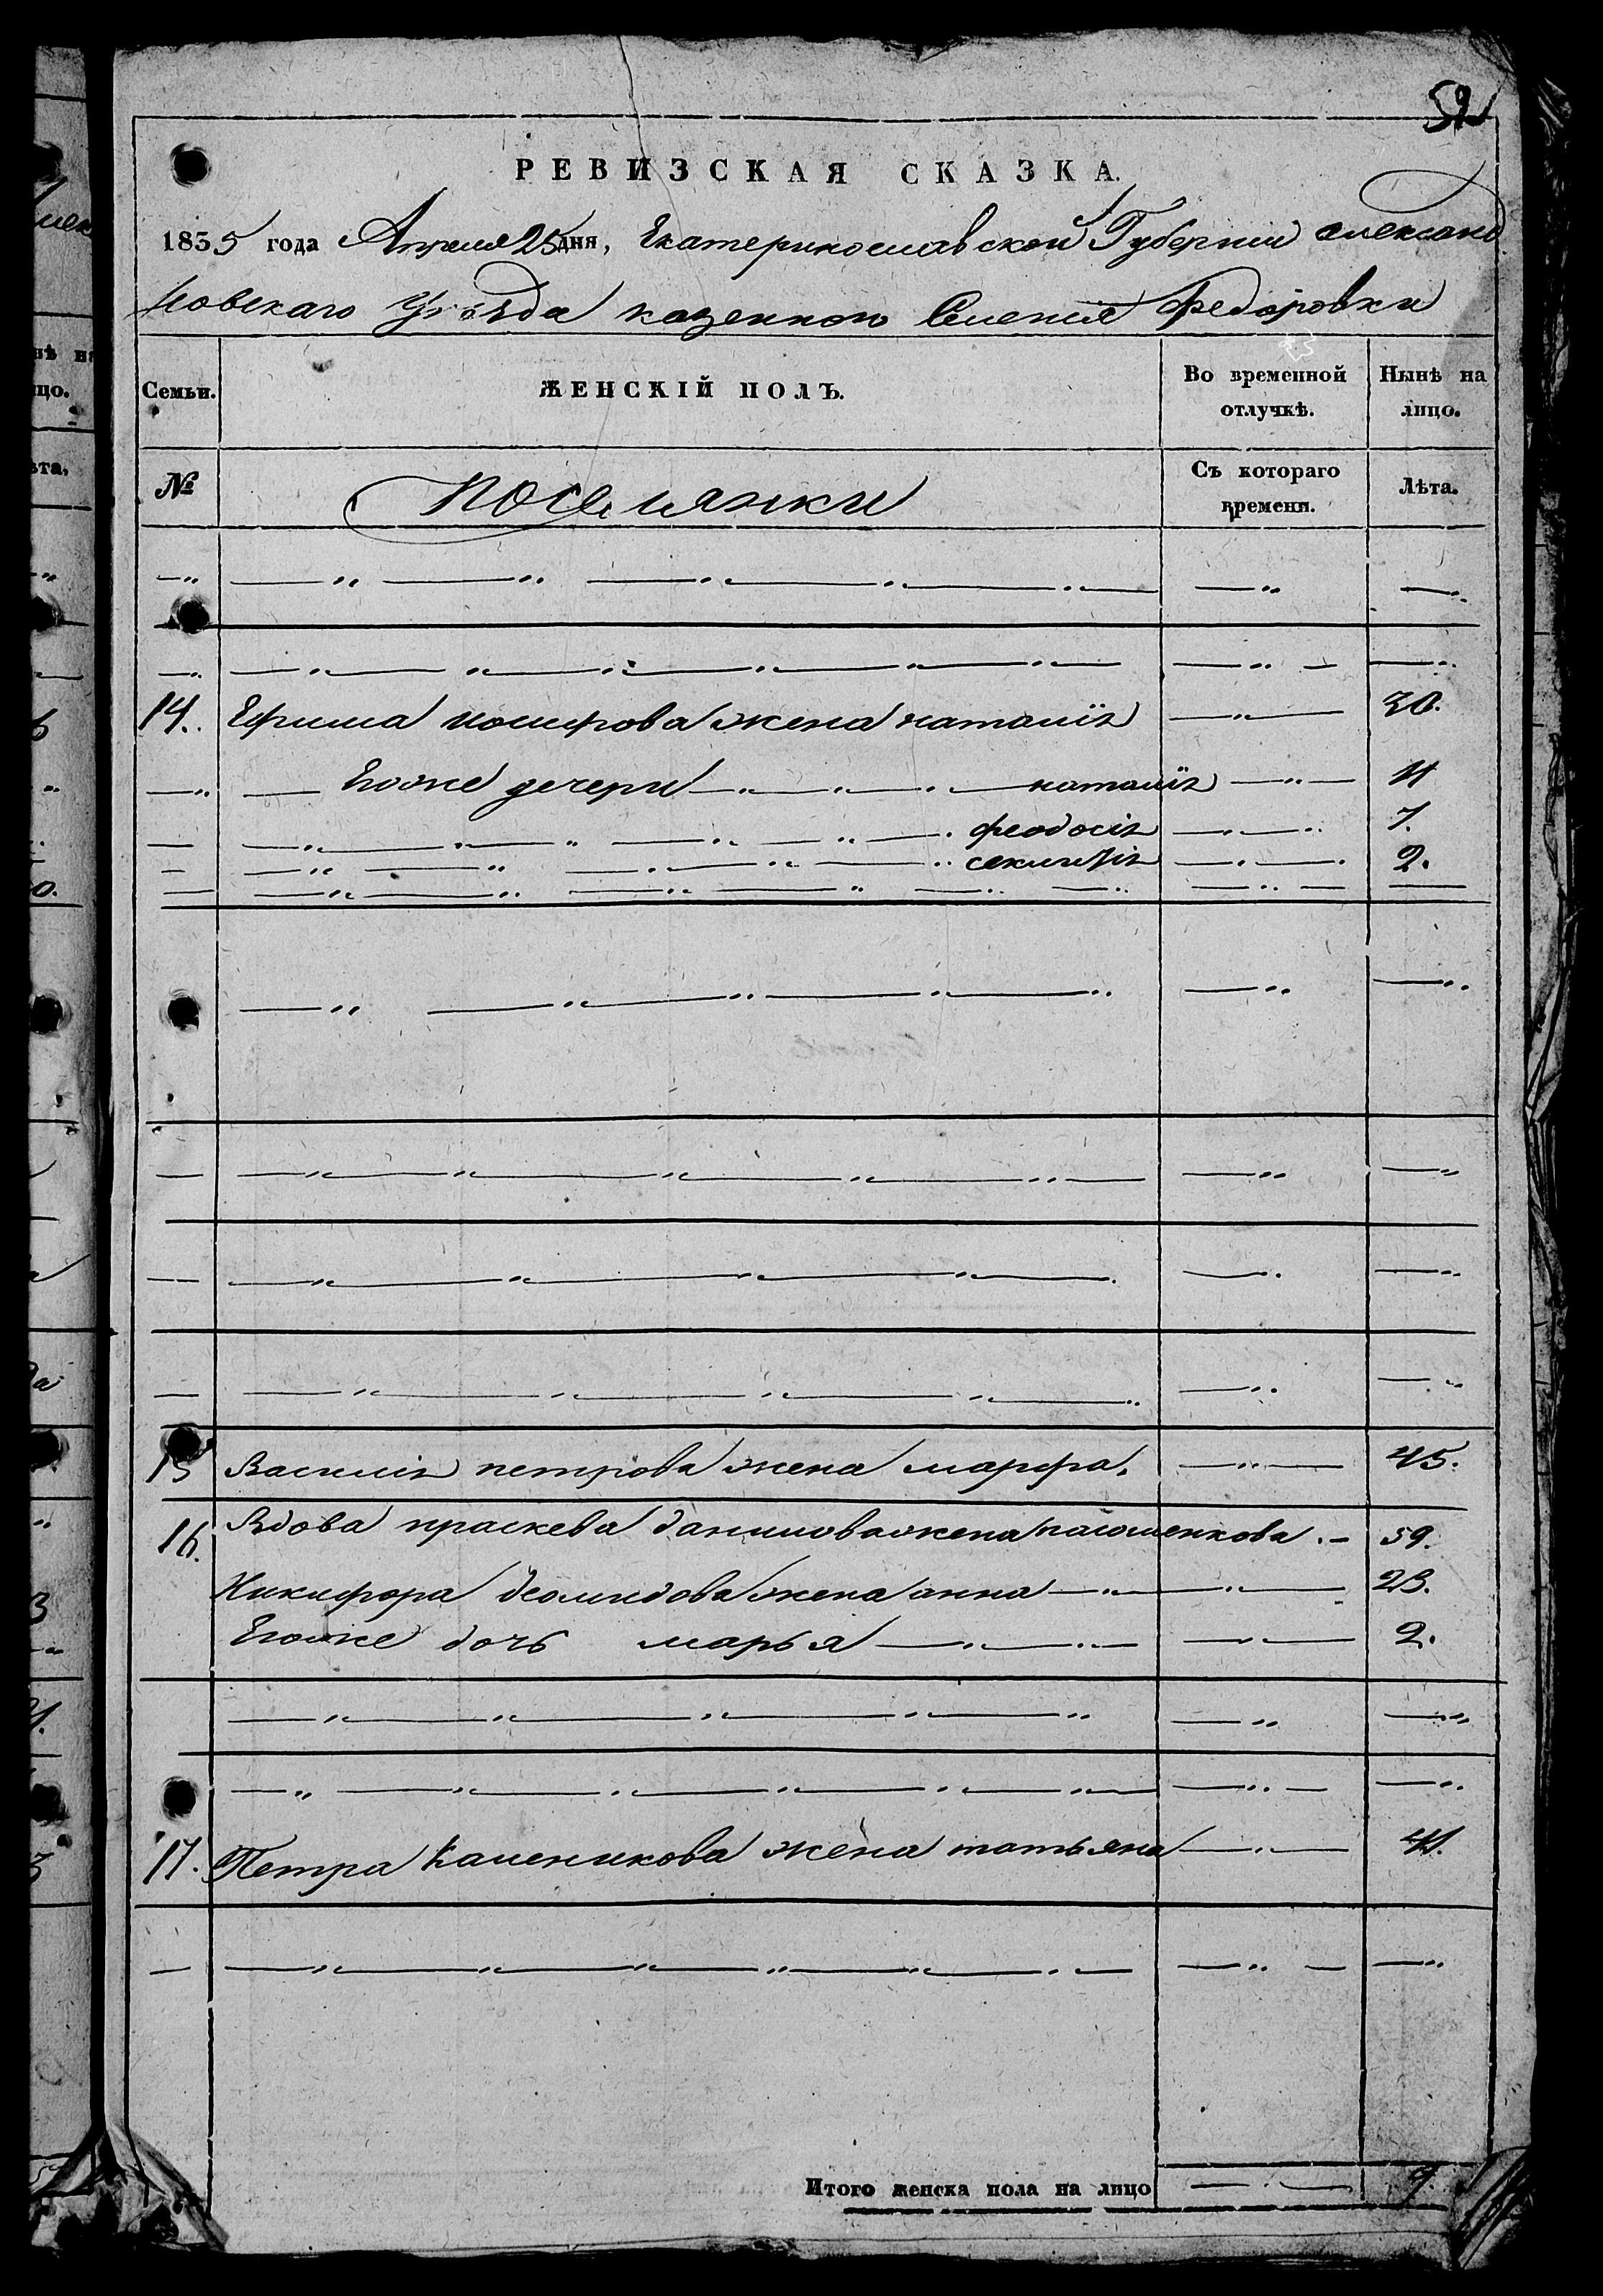 52
РЕВИЗСКАЯ СКАЗКА.
1835 года Апреля 25 дня, Екатеринославской Губернии Александ
ровскаго Уѣзда казенного Селения Федоровки
Семьи. ЖЕНСКІЙ ПОЛЪ. Во временной отлучкѣ. Нынѣ на лицо.
№ Поселянки Съ котораго времени. Лѣта.
14. Ефима иосифова жена наталія 30.
Егоже дечери наталія 11
феодосія 7.
секлитія 2.
15 Василія петрова жена марфа. 45.
16. Вдова праскева данилова жена 59.
Никифора демидова жена анна 23.
Егоже дочь марья 2.
17. Петра Каменикова жена татьяна 41.
Итого женска пола на лицо 9.